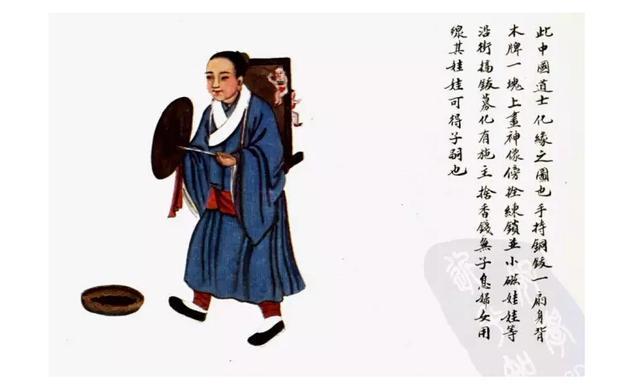 此中國道士化緣之圖也手持銅鈸一扇身背
木牌一塊上畫神像傍拴練鎖並小磁娃娃等
沿街搞鈸募化有施主捨香錢無子息婦女用
線其娃娃可得子嗣也